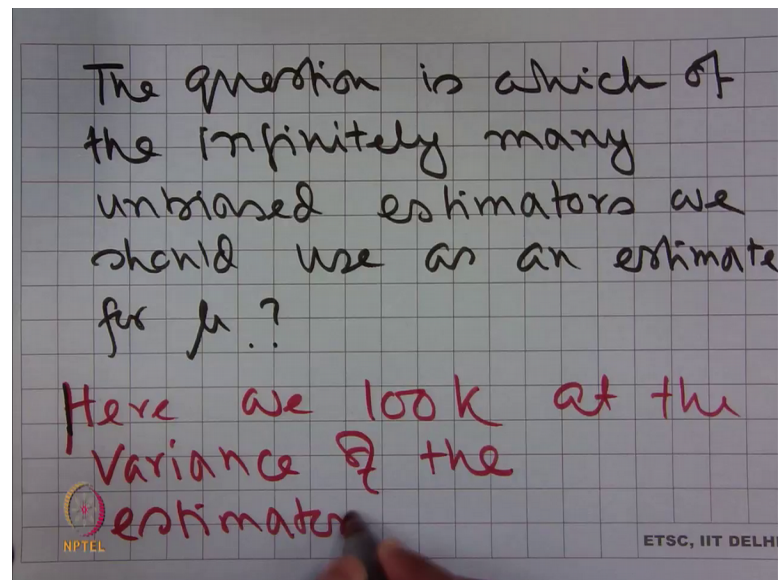 The question is which of
the infinitely many
unbiased estimators we
should use as an estimate
for μ.?
Here we look at the
variance of the
estimator
NPTEL
ETSC, IIT DELHI